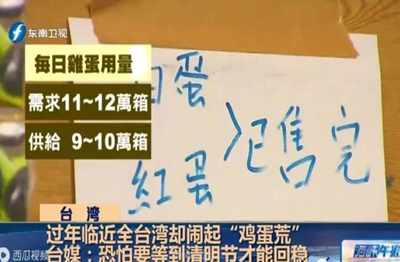 东南卫视
每日雞蛋用量
需求11~12萬箱
供給 9~10萬箱
白蛋
紅蛋
>已售完
台 湾
过年临近全台湾却闹起“鸡蛋荒”
台媒：恐怕要等到清明节才能回稳
西瓜视频
海峡午报